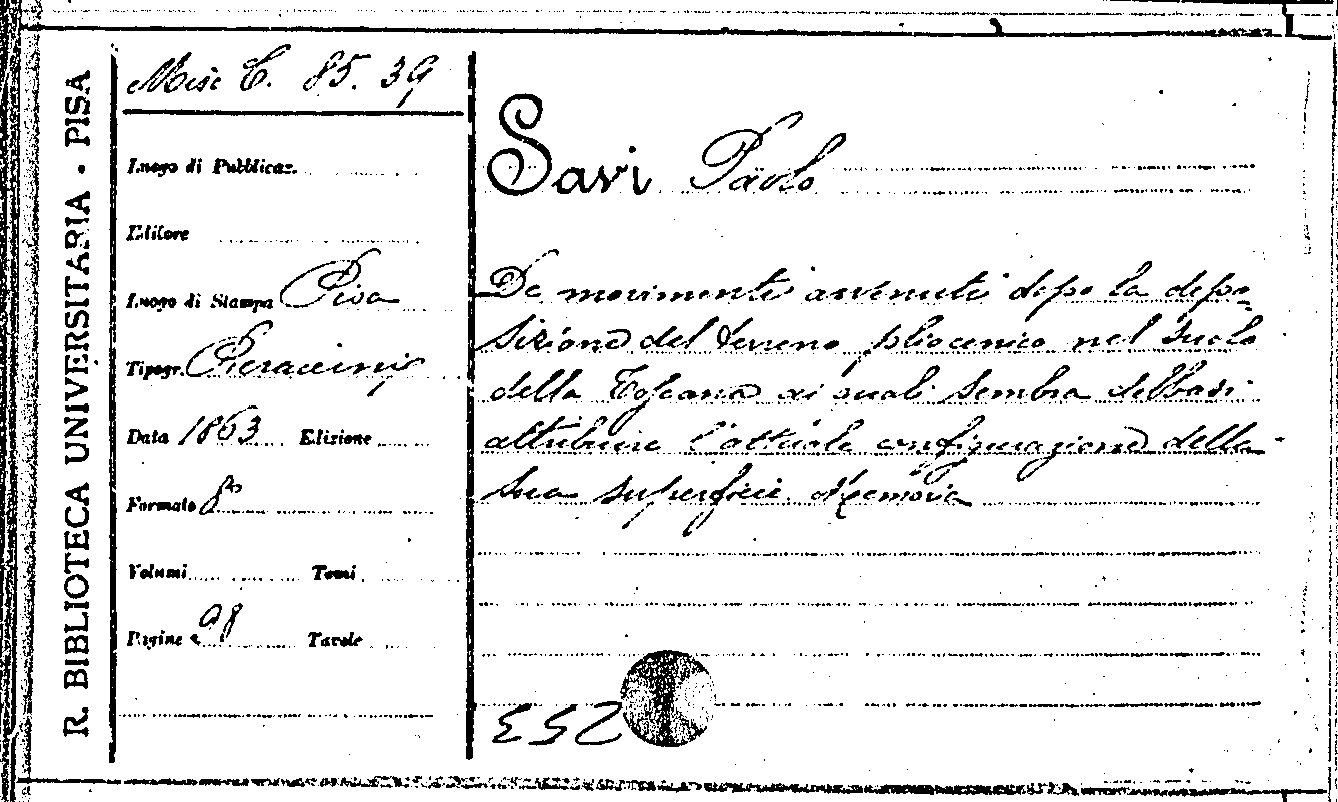 R. BIBLIOTECA UNIVERSITARIA - PISA
Misc C. 85. 39
Luogo di Pubblicaz.
Editore
Luogo di Stampa Pisa
Tipogr. Pieraccini
Data 1863 Edizione
Formato 8º
Volumi Tomi
Pagine 28 Tavole
Savi Paolo
De movimenti avvenuti dopo la depo-
sizione del terreno pliocenico nel suolo
della Toscana ai quali sembra debbasi
attribuire l'attuale configurazione della
sua superficie. Memoria
253